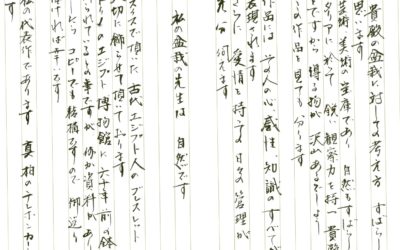 貴殿の盆栽に対する考え方 すばらし
思います
芸術 美術の宝庫であり 自然もすばら
タリアに於て 鋭い観察力を持つ貴殿
ですから 得る物が 沢山あるでしょう
作品には その人の心 感性、知識のすべてが
表現されます
さらに 愛情を持って 日々の管理が
充分 伺えます
私の盆栽の先生は 自然です
スで頂いた 古代エジプト人のブレスレット
切に飾らせて頂いております
トのエジプト博物館に 六千年前の鉢
られているとの事ですが 何か資料があり
したら コピーでも結構ですので 御送り
ければ幸いです
私の代表作であります 真柏のテレホンカー
す